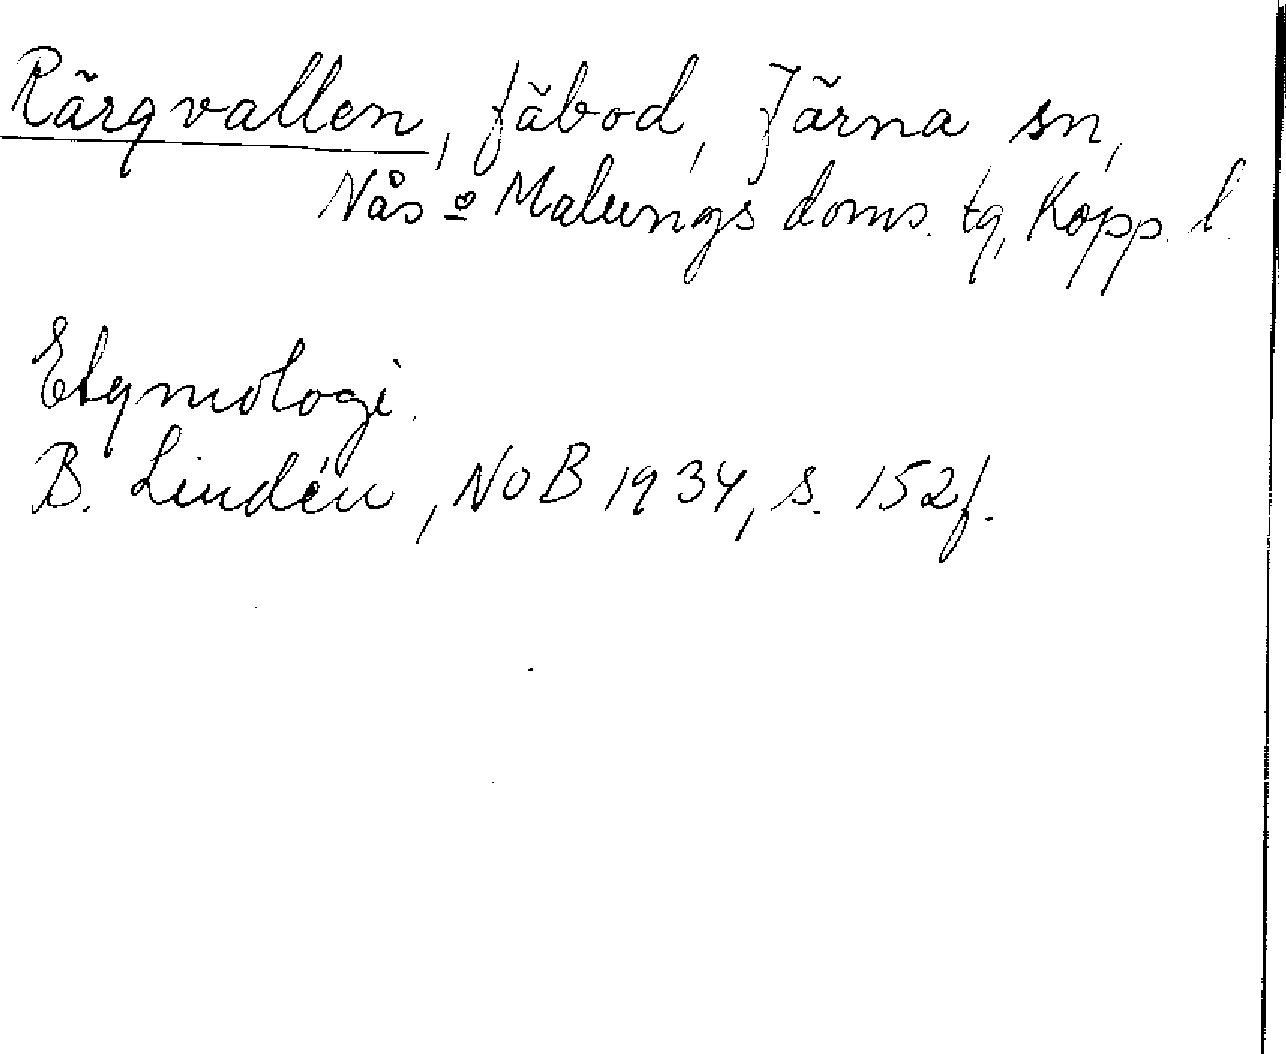 Rärgvallen, fäbod, Järna sn,
Nås o Malungs doms. tg, Kopp. l.
Etymologi.
B. Lindén, NoB 1934, s. 152f.